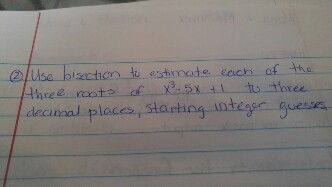 ② Use bisection to estimate each of the
three roots of x³-5x +1 to three
decimal places, starting integer guesses